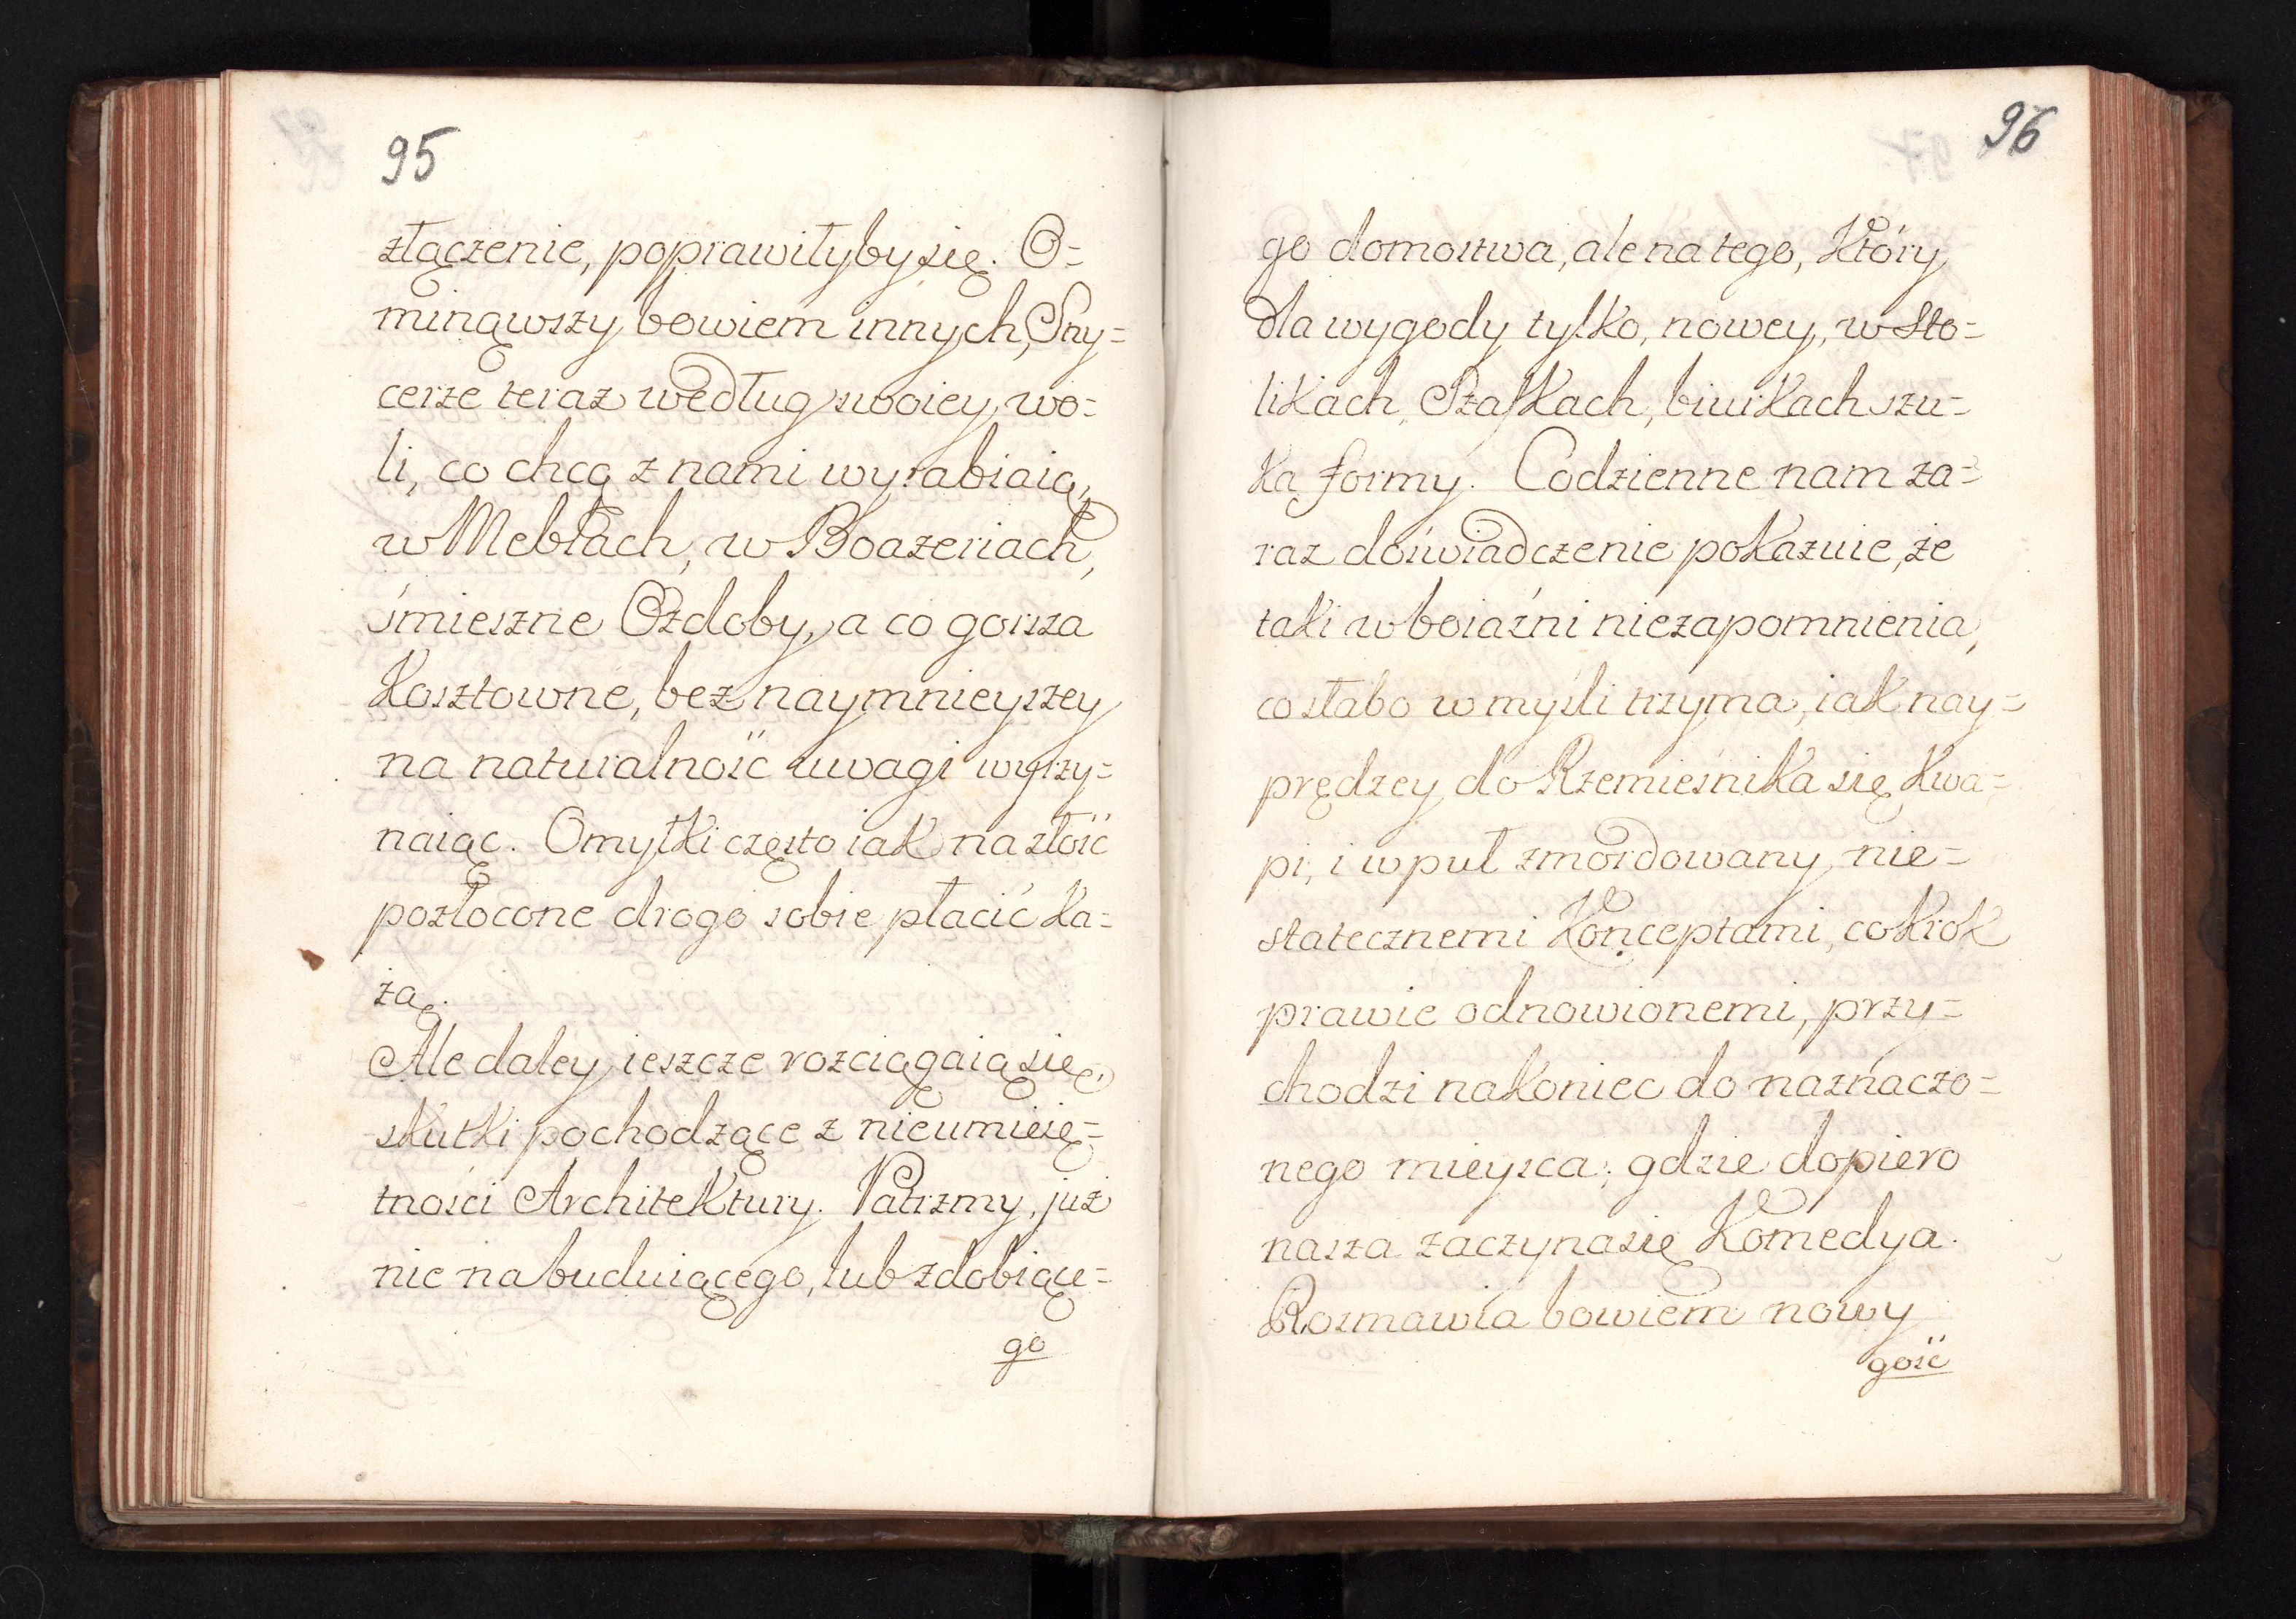 95
złączenie, poprawiłyby się. O=
minąwszy bowiem innych, Sny=
cerze teraz według swoiey wo=
li, co chcą z nami wyrabiaią,
w Meblach, w Boazeriach,
śmieszne Ozdoby, a co gorsza
Kosztowne, bez naymnieyszey
na naturalność uwagi wyrzy=
naiąc. Omyłki często iak na złość
pozłocone drogo sobie płacić Ka=
żą.
Ale daley ieszcze rozciągaią się,
skutki pochodzące z nieumieię=
tności Architektury. Patrzmy, już
nie na buduiącego, lub zdobiące=
go
96
go domostwa, ale na tego, Który
dla wygody tylko, nowey, w Sto=
likach, Szafkach, biurkach szu=
ka formy. Codzienne nam za=
raz doświadczenie pokazuie, że
taki w boiaźni niezapomnienia,
co słabo w myśli trzyma, iak nay=
prędzey do Rzemieśnika się Kwa=
pi, i w puł zmordowany nie=
statecznemi Konceptami, co Krok
prawie odnowionemi, przy=
chodzi nakoniec do naznaczo=
nego mieysca; gdzie dopiero
nasza zaczyna się Komedya.
Rozmawia bowiem nowy
gość